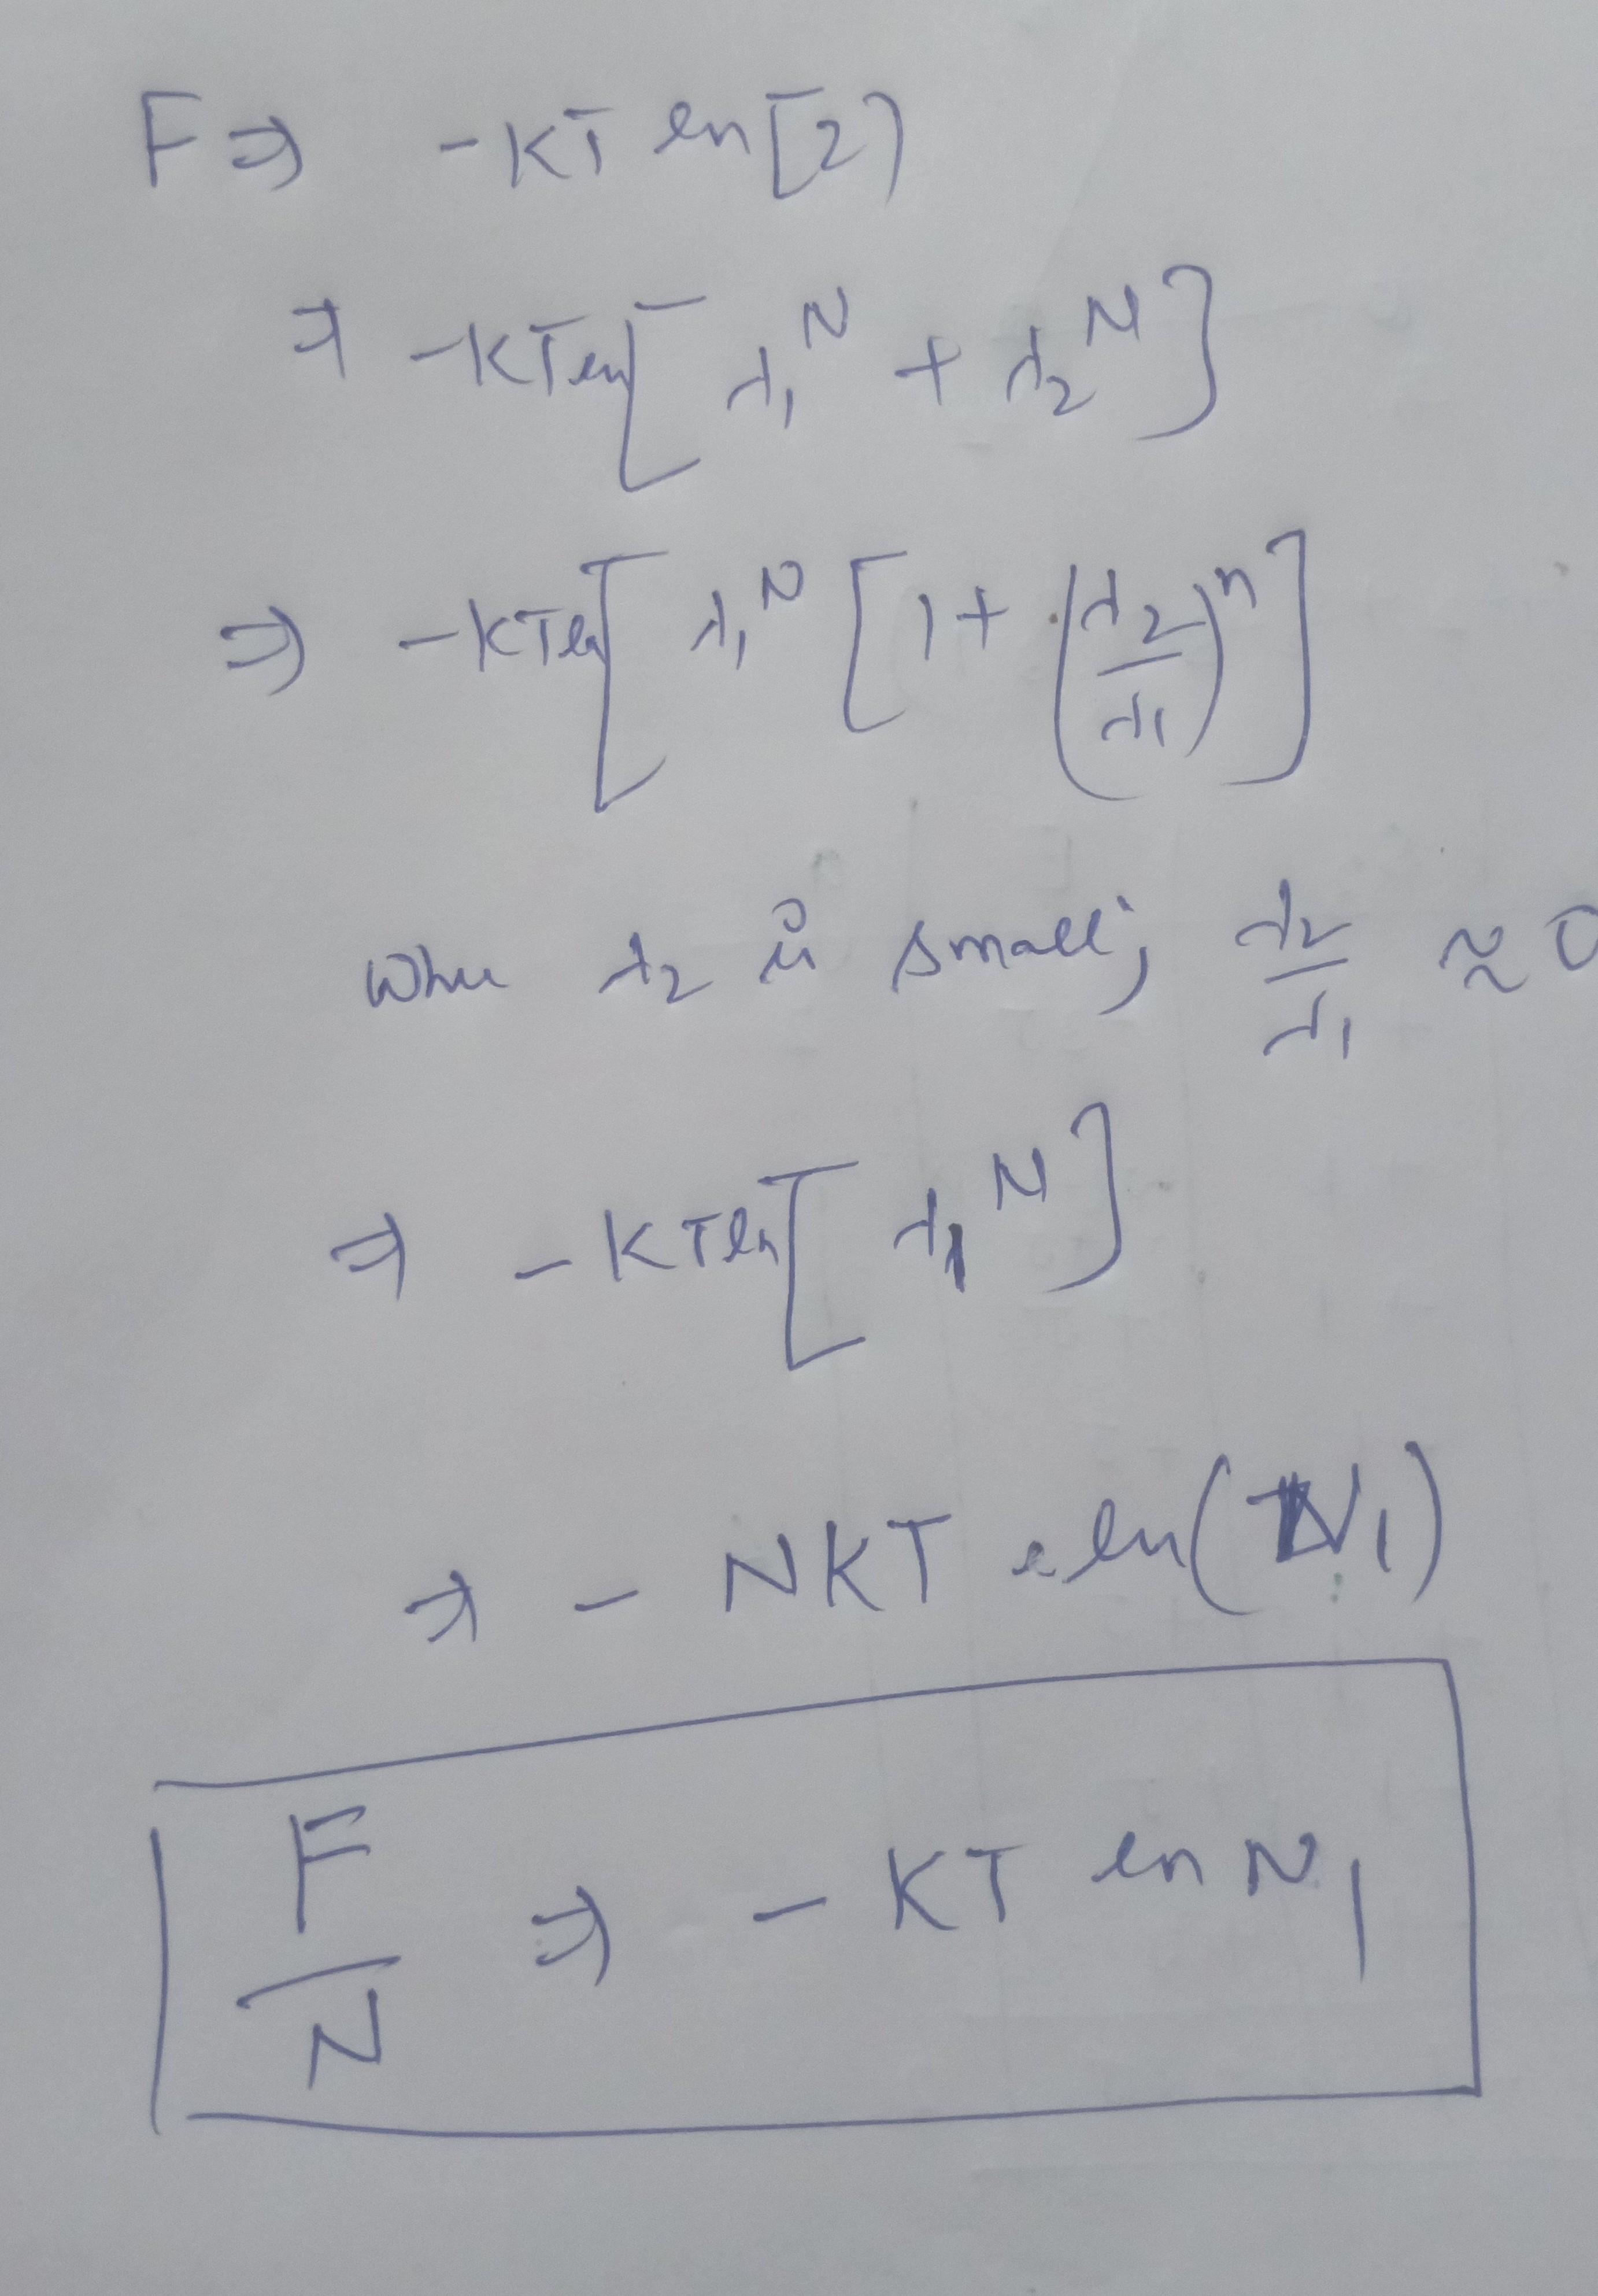 F ⇒ -KT ln[2)
⇒ -KTln[ λ₁ᴺ + λ₂ᴺ ]
⇒ -KTln[ λ₁ᴺ [ 1 + (λ₂/λ₁)ⁿ ]
λ₂ is small; λ₂/λ₁ ≈ 0
⇒ -KTln[ λ₁ᴺ ]
⇒ - NKT ln(N₁)
F/N ⇒ - KT ln N₁